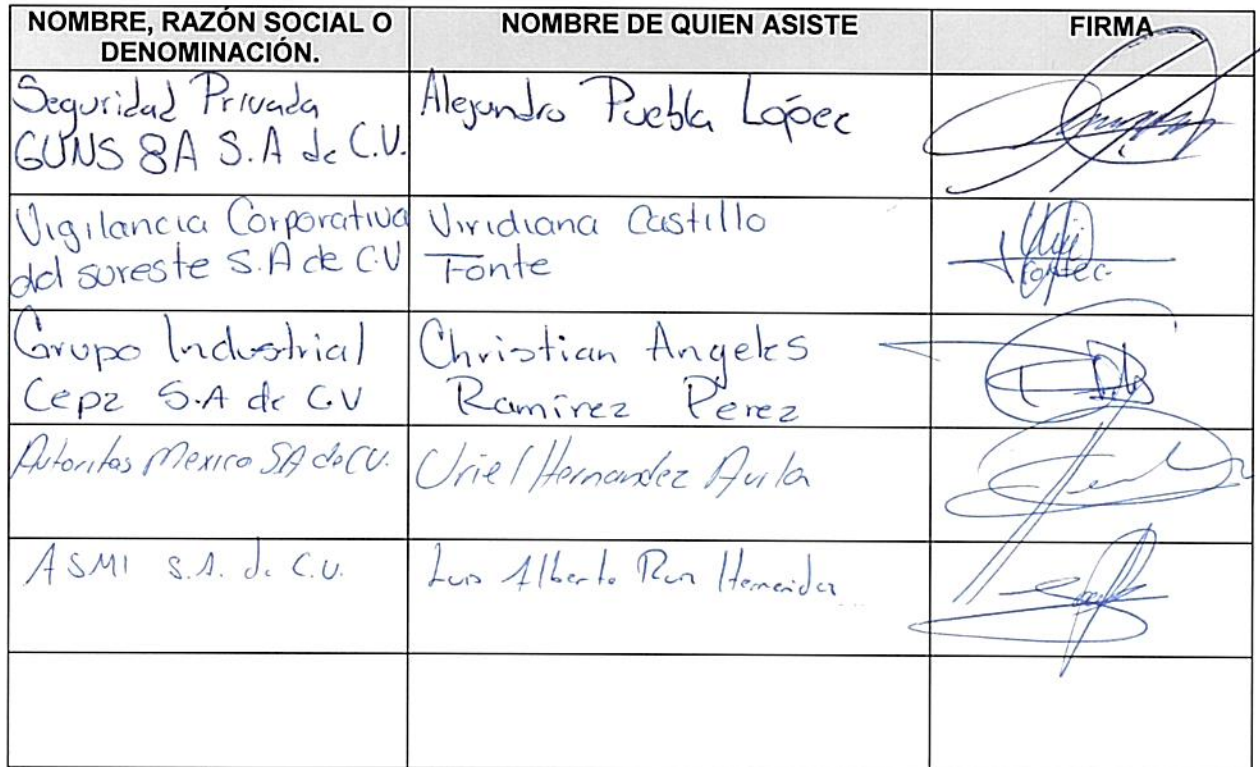 NOMBRE, RAZÓN SOCIAL O
DENOMINACIÓN.
NOMBRE DE QUIEN ASISTE
FIRMA
Seguridad Privada
GUNS 8A S.A de C.V.
Alejandro Puebla López
Vigilancia Corporativa
del sureste S.A de C.V
Viridiana Castillo
Fonte
Grupo Industrial
Cepz S.A de C.V
Christian Angeles
Ramírez Perez
Autoritas Mexico SA de CV.
Uriel Hernandez Avila
ASMI S.A. de C.V.
Luis Alberto Hernandez